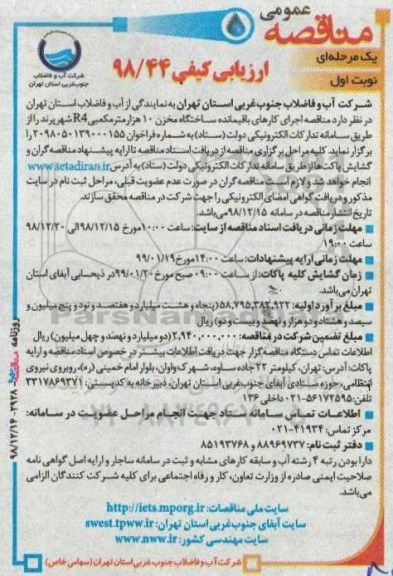 مناقصه عمومی
یک مرحله‌ای
نوبت اول
ارزیابی کیفی ۹۸/۴۴
شرکت آب و فاضلاب
جنوب غربی استان تهران
شرکت آب و فاضلاب جنوب غربی استان تهران به نمایندگی از آب و فاضلاب استان تهران
در نظر دارد مناقصه اجرای کارهای باقیمانده ساختگاه مخزن ۱۰ هزار مترمکعبی R4 شهر پرند را از
طریق سامانه تدارکات الکترونیکی دولت (ستاد) به شماره فراخوان ۲۰۹۸۰۵۰۱۳۹۰۰۰۱۵۵ را
برگزار نماید. کلیه مراحل برگزاری مناقصه از دریافت اسناد مناقصه تا ارایه پیشنهاد مناقصه گران و
گشایش پاکت ها از طریق سامانه تدارکات الکترونیکی دولت (ستاد) به آدرس www.setadiran.ir
انجام خواهد شد و لازم است مناقصه گران در صورت عدم عضویت قبلی، مراحل ثبت نام در سایت
مذکور و دریافت گواهی امضای الکترونیکی را جهت شرکت در مناقصه محقق سازند.
تاریخ انتشار مناقصه در سامانه ۹۸/۱۲/۱۵ می‌باشد.
مهلت زمانی دریافت اسناد مناقصه از سایت: ساعت ۱۰:۰۰ مورخ ۹۸/۱۲/۱۵ الی ۹۸/۱۲/۲۰
ساعت ۱۹:۰۰
مهلت زمانی ارایه پیشنهادات: ساعت ۱۴:۰۰ مورخ ۹۹/۰۱/۱۹
زمان گشایش کلیه پاکات: از ساعت ۰۹:۰۰ صبح مورخ ۹۹/۰۱/۲۰ در ذیحسابی آبفای استان
تهران می‌باشد.
مبلغ برآورد اولیه: ۵۸,۷۹۵,۳۸۲,۹۲۲ (پنجاه و هشت میلیارد و هفتصد و نود و پنج میلیون و
سیصد و هشتاد و دو هزار و نهصد و بیست و دو) ریال
مبلغ تضمین شرکت در مناقصه: ۲,۹۴۰,۰۰۰,۰۰۰ (دو میلیارد و نهصد و چهل میلیون) ریال
اطلاعات تماس دستگاه مناقصه گزار جهت دریافت اطلاعات بیشتر در خصوص اسناد مناقصه و ارایه
پاکات: آدرس: تهران، کیلومتر ۲۲ جاده ساوه، شهرک واوان، بلوار امام خمینی (ره)، روبروی نیروی
انتظامی، حوزه ستادی آبفای جنوب غربی استان تهران، دبیرخانه به کدپستی: ۳۳۱۷۸۶۹۳۷۱
تلفن: ۵۶۱۷۲۵۹۵-۰۲۱ داخلی ۱۳۶
اطلاعات تماس سامانه ستاد جهت انجام مراحل عضویت در سامانه:
مرکز تماس: ۴۱۹۳۴-۰۲۱
دفتر ثبت نام: ۸۸۹۶۹۷۳۷ و ۸۵۱۹۳۷۶۸
دارا بودن رتبه ۴ رشته آب و سابقه کارهای مشابه و ثبت در سامانه ساجار و ارایه اصل گواهی نامه
صلاحیت ایمنی صادره از وزارت تعاون، کار و رفاه اجتماعی برای کلیه شرکت کنندگان الزامی
می‌باشد.
سایت ملی مناقصات: http://iets.mporg.ir
سایت آبفای جنوب غربی استان تهران: swest.tpww.ir
سایت مهندسی کشور: www.nww.ir
شرکت آب و فاضلاب جنوب غربی استان تهران (سهامی خاص)
روزنامه مناقصه ۲۹۲۸ - ۹۸/۱۲/۱۴